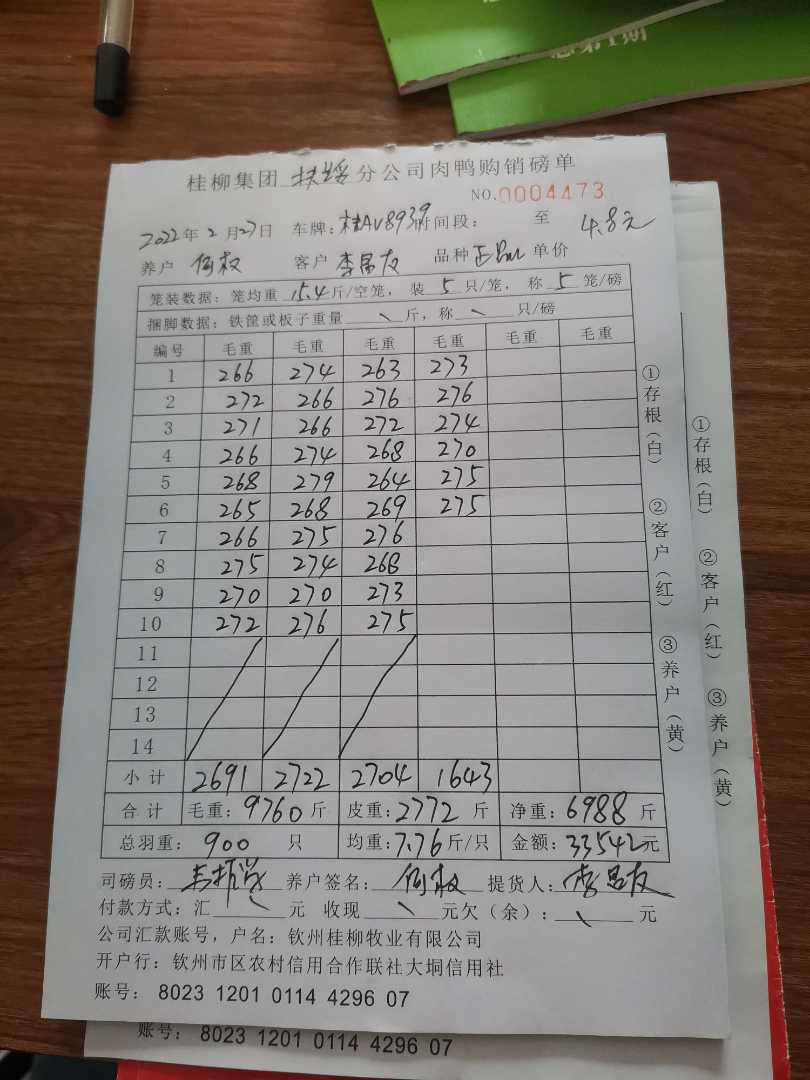 总第1期
桂柳集团 扶绥 分公司肉鸭购销磅单
NO.0004473
2022年2月27日 车牌:桂AV8939时间段: 至
养户 何权 客户 李昂友 品种 单价 4.8元
笼装数据:笼均重 15.4 斤/空笼,装 5 只/笼,称 5 笼/磅
捆脚数据:铁筐或板子重量 \ 斤,称 \ 只/磅
编号 毛重 毛重 毛重 毛重 毛重 毛重
1 266 274 263 273
2 272 266 276 276
3 271 266 272 274
4 266 274 268 270
5 268 279 264 275
6 265 268 269 275
7 266 275 276
8 275 274 268
9 270 270 273
10 272 276 275
11
12
13
14
小计 2691 2722 2704 1643
合计 毛重:9760斤 皮重:2772斤 净重:6988斤
总羽重:900 只 均重:7.76斤/只 金额:33542元
司磅员: 养户签名:何权 提货人:李昂友
付款方式:汇 \ 元 收现 \ 元欠(余): \ 元
公司汇款账号,户名:钦州桂柳牧业有限公司
开户行:钦州市区农村信用合作联社大垌信用社
账号: 8023 1201 0114 4296 07
①存根(白) ②客户(红) ③养户(黄)
①存根(白) ②客户(红) ③养户(黄)
账号: 8023 1201 0114 4296 07